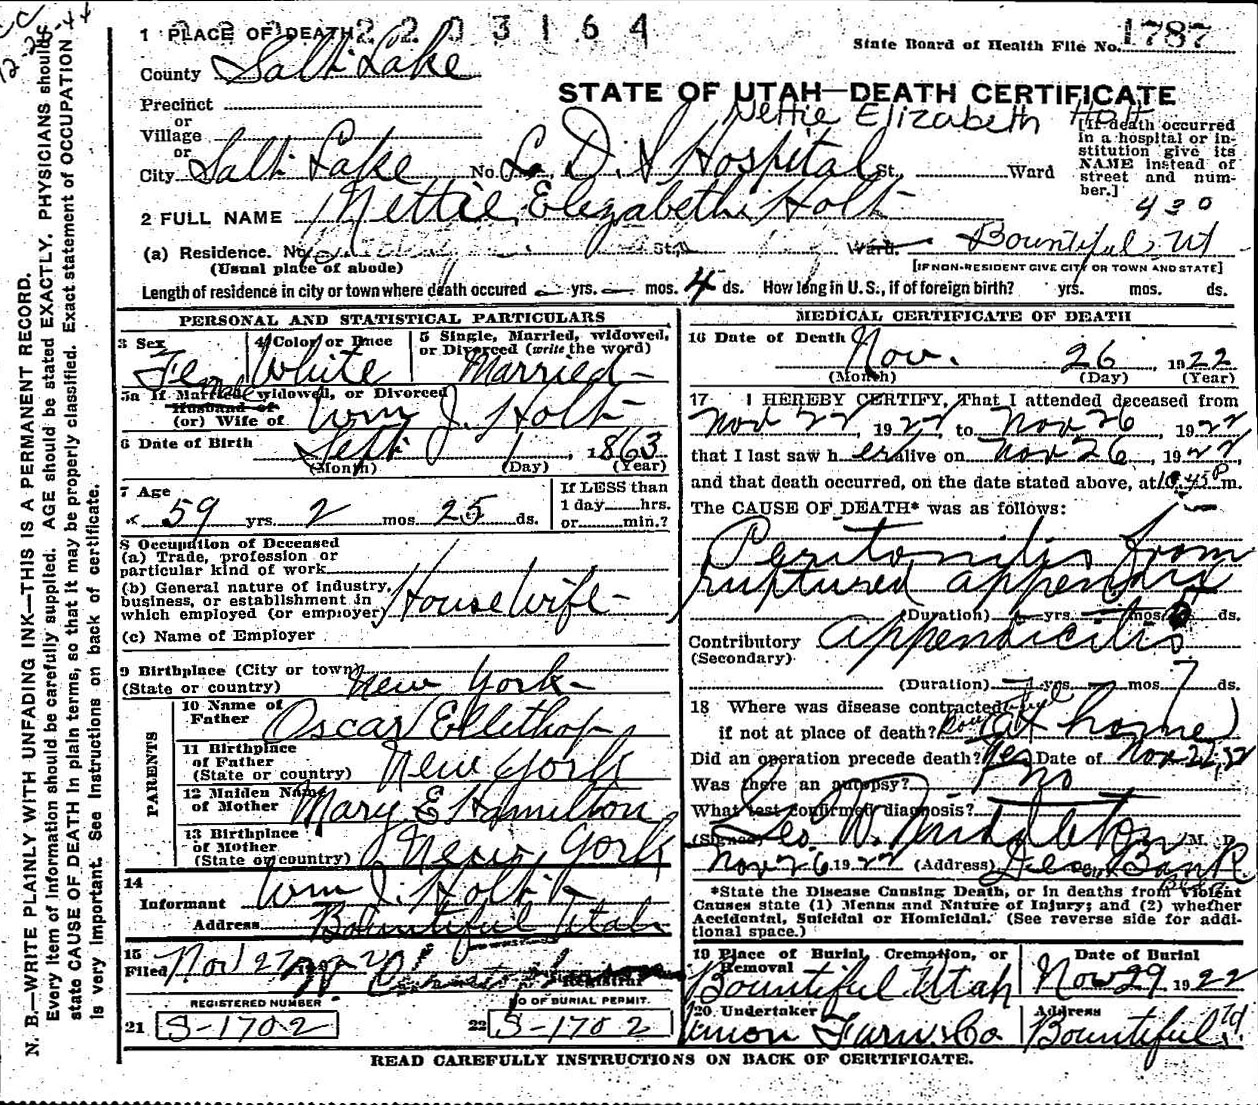 12-28-44
2203164
1 PLACE OF DEATH
State Board of Health File No. 1787
County Salt Lake
STATE OF UTAH—DEATH CERTIFICATE
Precinct
Nettie Elizabeth Holt
or
Village
or
City Salt Lake No. L. D. S Hospital St. Ward
[If death occurred in a hospital or institution give its NAME instead of street and number.]
430
2 FULL NAME Nettie Elizabeth Holt
(a) Residence. No. St. Ward. Bountiful, Ut
(Usual place of abode) [IF NON-RESIDENT GIVE CITY OR TOWN AND STATE]
Length of residence in city or town where death occured — yrs. — mos. 4 ds. How long in U. S., if of foreign birth? yrs. mos. ds.
PERSONAL AND STATISTICAL PARTICULARS
3 Sex Female
4 Color or Race White
5 Single, Married, widowed, or Divorced (write the word) Married
5a If Married, widowed, or Divorced
Husband of
(or) Wife of Wm J. Holt
6 Date of Birth Sept 1, 1863
(Month) (Day) (Year)
7 Age 59 yrs. 2 mos. 25 ds.
If LESS than
1 day hrs.
or min.?
8 Occupation of Deceased
(a) Trade, profession or
particular kind of work
(b) General nature of industry,
business, or establishment in
which employed (or employer) Housewife
(c) Name of Employer
9 Birthplace (City or town)
(State or country) New York
PARENTS
10 Name of
Father Oscar Ellethop
11 Birthplace
of Father
(State or country) New York
12 Maiden Name
of Mother Mary E Hamilton
13 Birthplace
of Mother
(State or country) New York
14
Informant Wm J. Holt
Address Bountiful Utah
15
Filed Nov 27
Registrar
REGISTERED NUMBER
NO OF BURIAL PERMIT.
21 S-1702
22 S-1702
MEDICAL CERTIFICATE OF DEATH
16 Date of Death Nov. 26, 1922
(Month) (Day) (Year)
17 I HEREBY CERTIFY, That I attended deceased from
Nov 22, 1922, to Nov 26, 1922
that I last saw her alive on Nov 26, 1922
and that death occurred, on the date stated above, at 10.45 P m.
The CAUSE OF DEATH* was as follows:
Peritonitis from
ruptured appendix
(Duration) yrs. mos. ds.
Contributory appendicitis
(Secondary)
(Duration) yrs. mos. 7 ds.
18 Where was disease contracted
if not at place of death? Bountiful (at home)
Did an operation precede death? Yes Date of Nov 22,
Was there an autopsy? no
What test confirmed diagnosis?
(Signed) Geo. W. Middleton, M. D.
Nov 26 1922 (Address) Deseret Bank
*State the Disease Causing Death, or in deaths from Violent
Causes state (1) Means and Nature of Injury; and (2) whether
Accidental, Suicidal or Homicidal. (See reverse side for additional space.)
19 Place of Burial, Cremation, or
Removal Bountiful Utah
Date of Burial
Nov 29 1922
20 Undertaker Union Furn. Co
Address
Bountiful, Ut.
READ CAREFULLY INSTRUCTIONS ON BACK OF CERTIFICATE.
N. B.—WRITE PLAINLY WITH UNFADING INK—THIS IS A PERMANENT RECORD.
Every item of information should be carefully supplied. AGE should be stated EXACTLY. PHYSICIANS should
state CAUSE OF DEATH in plain terms, so that it may be properly classified. Exact statement of OCCUPATION
is very important. See Instructions on back of certificate.